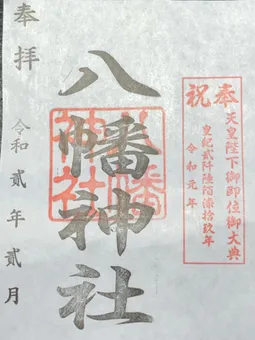 奉祝
天皇陛下御即位御大典
皇紀貳阡陸佰漆拾玖年
令和元年
八幡神社
八幡神社
奉拝
令和貳年貳月